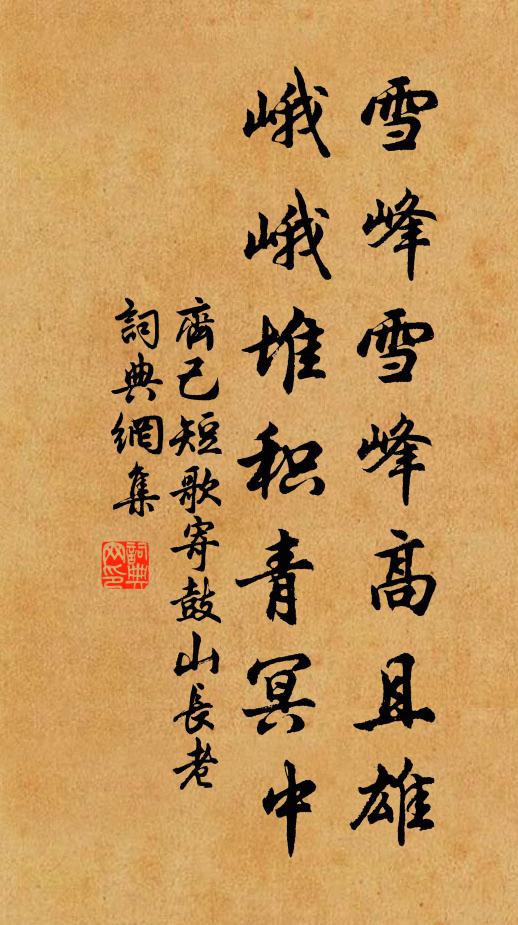 雪峰雪峰高且雄
峨峨堆积青冥中
齊己短歌寄鼓山長老
詞典網集
詞典
网印